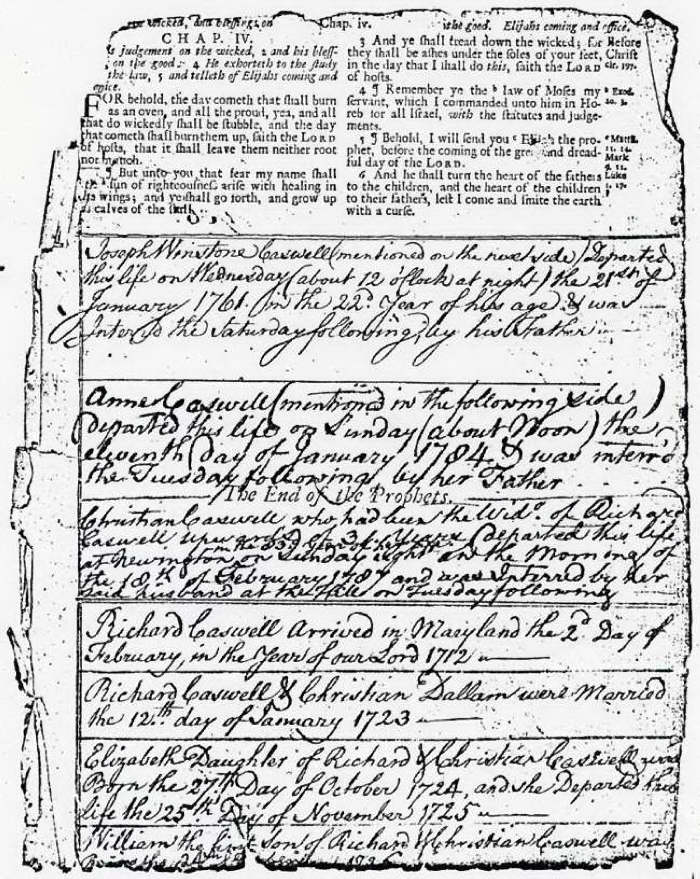 the wicked, and blessing on Chap. iv. the good. Elijahs coming and office.
CHAP. IV.
judgement on the wicked, 2 and his bless-
on the good: 4 He exhorteth to the study
the law, 5 and telleth of Elijahs coming and
office.
FOR behold, the day cometh that shall burn
as an oven, and all the proud, yea, and all
that do wickedly shall be stubble, and the day
that cometh shall burn them up, saith the LORD
of hosts, that it shall leave them neither root
nor branch.
¶ But unto you that fear my name shall
the sun of righteousness arise with healing in
his wings; and ye shall go forth, and grow up
as calves of the stall.
3 And ye shall tread down the wicked; for
they shall be ashes under the soles of your feet,
in the day that I shall do this, saith the LORD
of hosts.
4 ¶ Remember ye the b law of Moses my
servant, which I commanded unto him in Ho-
reb for all Israel, with the statutes and judge-
ments.
5 ¶ Behold, I will send you c Elijah the pro-
phet, before the coming of the great and dread-
ful day of the LORD.
6 And he shall turn the heart of the fathers
to the children, and the heart of the children
to their fathers, lest I come and smite the earth
with a curse.
Before
Christ
cir. 397.
b Exod.
20. 3.
c Matth.
11. 14.
Mark
9. 11.
Luke
1. 17.
Joseph Winstone Caswell (mentioned on the next side) Departed
this life on Wednesday (about 12 o'Clock at night) the 21st of
January 1761 in the 22d Year of his age & was
Interred the Saturday following, by his Father
Anne Caswell (mentioned in the following side)
departed this life on Sunday (about Noon) the
eleventh day of January 1784 & was interr'd
the Tuesday following by her Father
The End of the Prophets.
Christian Caswell who had been the Wido. of Richard
Caswell upward of 31 Years departed this life
in the 83d Year of her age
at Newington on Sunday night in the Morning of
the 18th of February 1787 and was Interred by her
said husband at the Hill on Tuesday following
Richard Caswell Arrived in Maryland the 2d Day of
February, in the Year of our Lord 1712
Richard Caswell & Christian Dallam were Married
the 12th day of January 1723
Elizabeth Daughter of Richard & Christian Caswell was
Born the 27th Day of October 1724, and she Departed this
life the 25th Day of November 1725
William the first son of Richard & Christian Caswell was
Born the 24th 1726